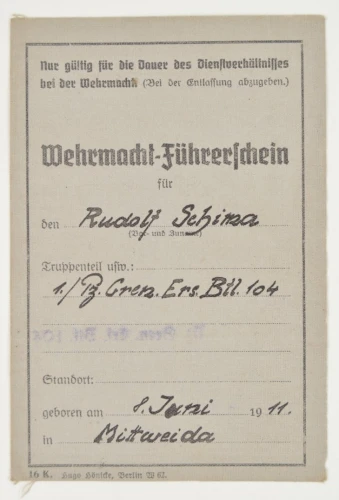 Nur gültig für die Dauer des Dienstverhältnisses
bei der Wehrmacht (Bei der Entlassung abzugeben.)
Wehrmacht-Führerschein
für
den Rudolf Schima
(Vor- und Zuname)
Truppenteil usw.:
1./Pz. Gren. Ers. Btl. 104
Ers. Btl. 104
Standort:
geboren am 8. Juni 1911.
in Mittweida
16 K. Hugo Hönicke, Berlin W 62.